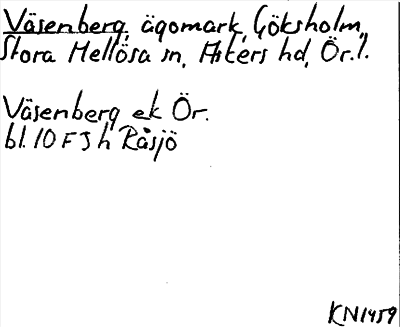 Väsenberg, ägomark, Göksholm,
Stora Mellösa sn, Askers hd, Ör. l.
Väsenberg ek Ör.
bl. 10 F 5 h Råsjö
KN 1459